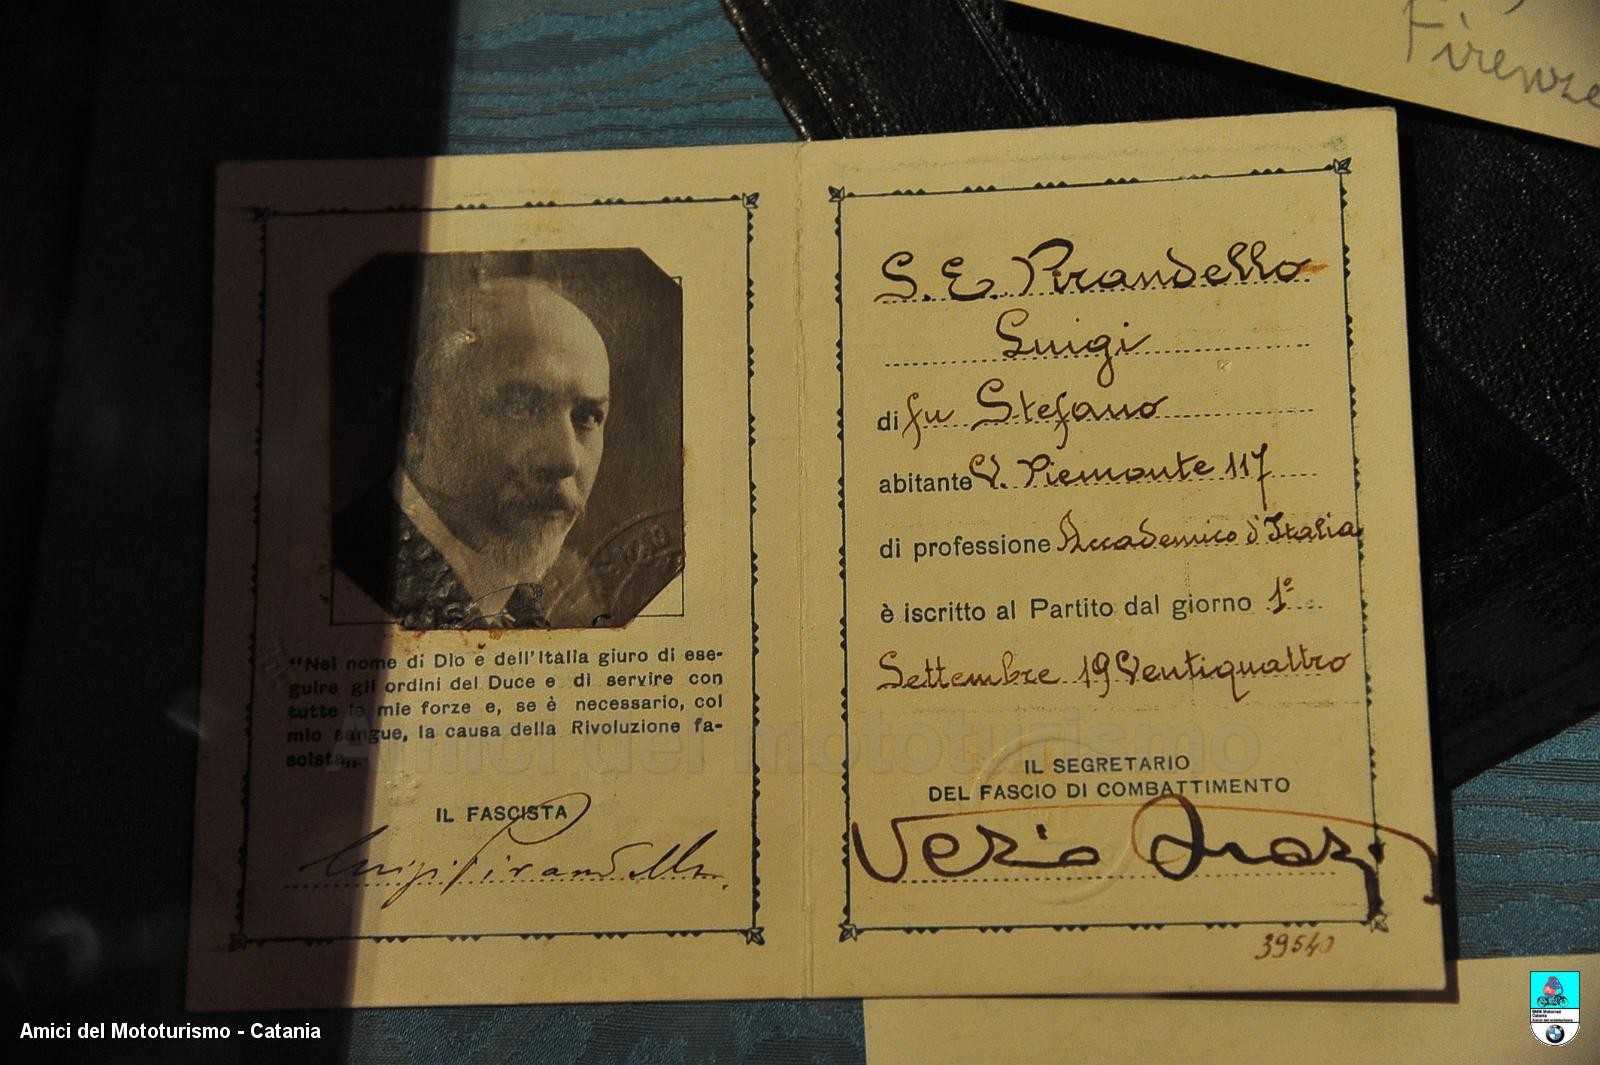 Firenze
"Nel nome di Dio e dell'Italia giuro di ese-
guire gli ordini del Duce e di servire con
tutte le mie forze e, se è necessario, col
mio sangue, la causa della Rivoluzione fa-
scista„.
IL FASCISTA
Luigi Pirandello
S. E. Pirandello
Luigi
di fu Stefano
abitante V. Piemonte 117
di professione Accademico d'Italia
è iscritto al Partito dal giorno 1°
Settembre 19 Ventiquattro
IL SEGRETARIO
DEL FASCIO DI COMBATTIMENTO
39540
Amici del mototurismo
Amici del Mototurismo - Catania